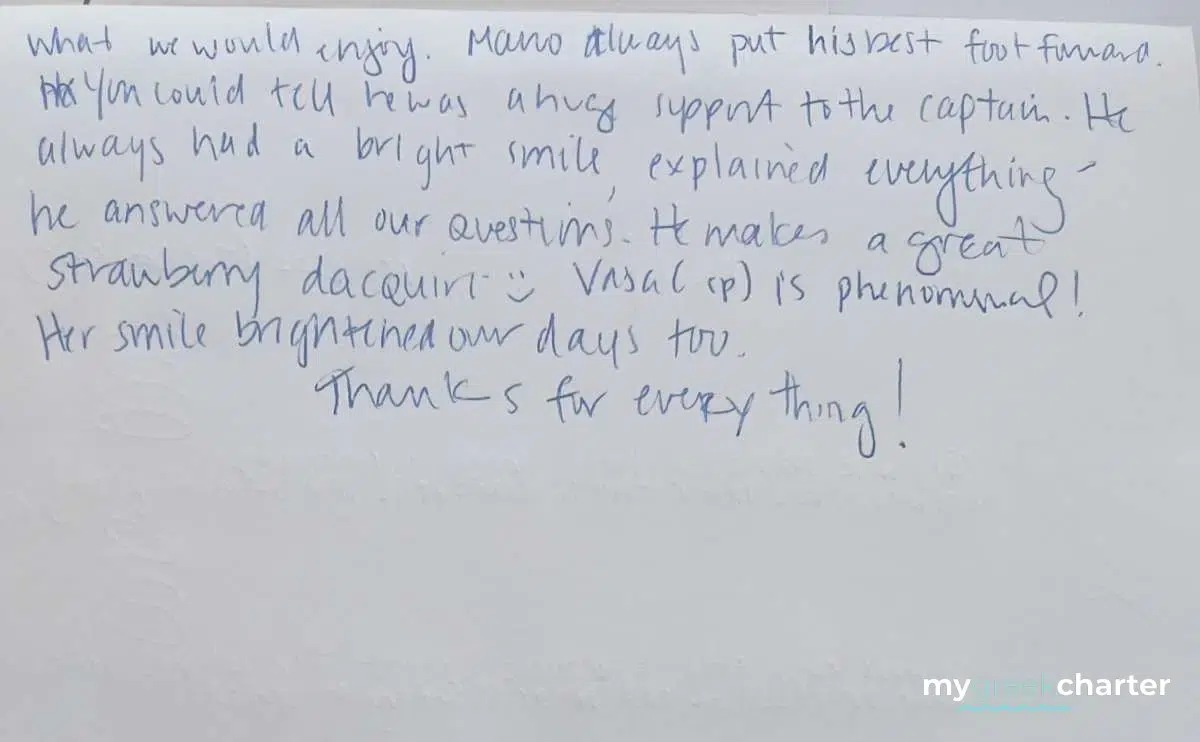 what we would enjoy. Mano always put his best foot forward.
You could tell he was a huge support to the captain. He
always had a bright smile, explained everything -
he answered all our questions. He makes a great
strawberry dacquiri :) Vasa( sp) is phenominal!
Her smile brightened our days too.
Thanks for every thing!
mygreekcharter